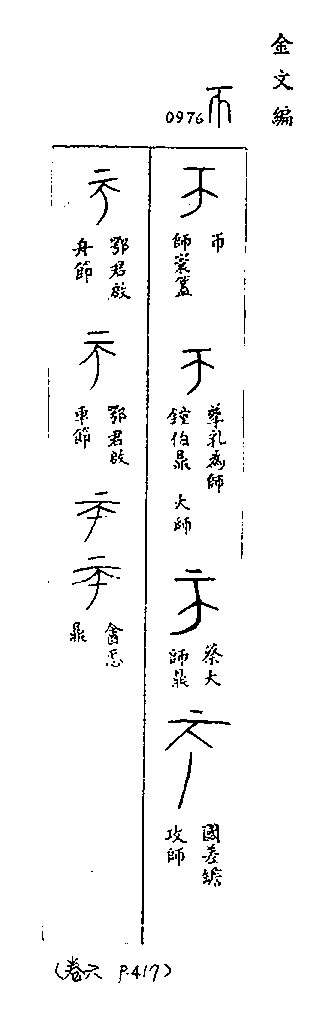 金文編
0976 帀
帀
師寰簋
孳乳為師
鐘伯鼎 大師
蔡大
師鼎
國差𦉜
攻師
鄂君啟
舟節
鄂君啟
車節
酓忎
鼎
(卷六 P.417)